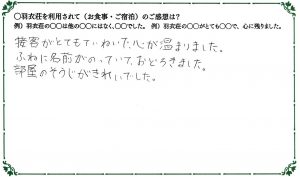 〇羽衣荘を利用されて（お食事・ご宿泊）のご感想は？
例）羽衣荘の〇〇は他の〇〇にはなく、〇〇でした。 例）羽衣荘の〇〇がとても〇〇で、心に残りました。
接客がとてもていねいで、心が温まりました。
ふねに名前がのっていて、おどろきました。
部屋のそうじがきれいでした。